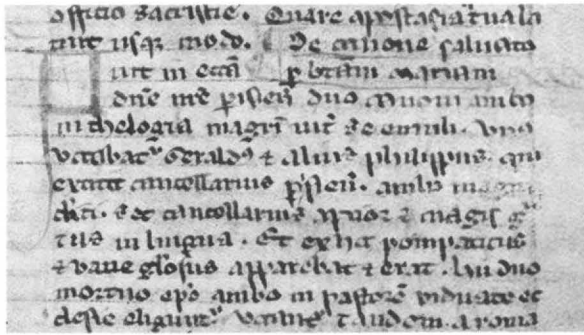 officio sacristie. Quare apostasia tua la
tuit usq; modo. De canone saluato
uit in ecc̄a p btām mariam
dn̄e pisien̄ duo canoni ambo
in theologia magri
vocabat᷒ Gerald᷒ ⁊ alius philippus. qui
extitit cancellarius p'sien̄. ambo magni
set cancellarius ⁊ magis
tus in lingua. Et ex hac pompaticus
⁊ uane gl'osus apparebat ⁊ erat. hii duo
mortuo ep̄o ambo in pastorē viduate ec
clesie eligunt᷒. tandem a roma